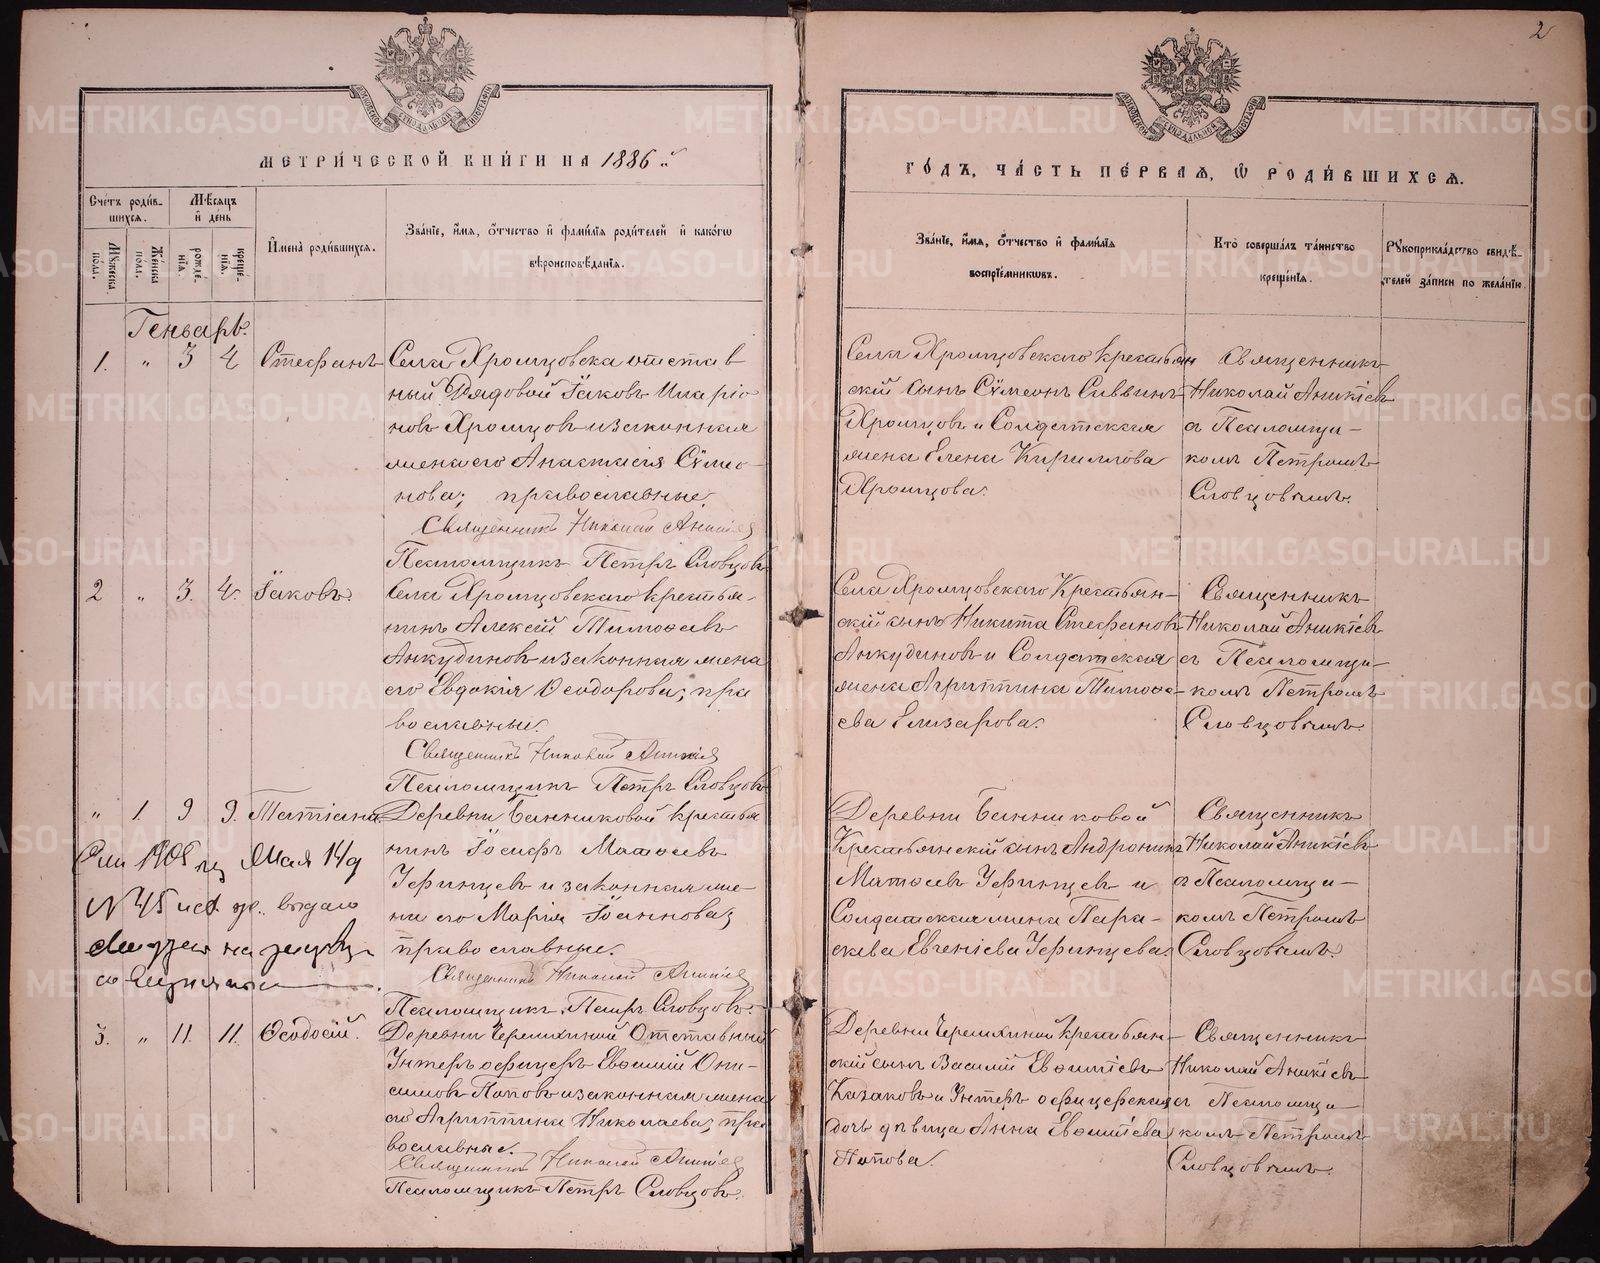 2
МЕТРИ́ЧЕСКОЙ КНИ́ГИ НА 1886й
Сче́тъ роди́в-
шихся.
Мѣсяцъ
и҆ день
Мꙋжеска
по́ла.
Же́нска
по́ла.
рожде́-
нїѧ.
креще́-
нїѧ.
И҆мена̀ роди́вшихся.
Зва́нїе, и҆́мѧ, ѻ҆́тчество и҆ фами́лїѧ роди́телей и҆ како́гѡ
вѣроисповѣ́данїѧ.
Генварь.
1. " 3 4 Стефанъ
Села Хромцовска отстав
ный Рядовой Іаковъ Иларіо
новъ Хромцовъ и законная
жена его Анастасія Сѵмео-
нова; православные
Священникъ Николай Аникіев
Псаломщикъ Петръ Словцовъ
2 " 3. 4. Іаковъ.
Села Хромцовскаго крестья-
нинъ Алексій Тимоѳеевъ
Анкудиновъ и законная жена
его Евдокія Ѳеодорова; пра
вославные.
Священникъ Николай Аникіев
Псаломщикъ Петръ Словцовъ
" 1. 9 9. Татіана.
Деревни Банниковой крестья
нинъ Іосифъ Матѳеевъ
Уфинцевъ и законная же-
на его Марія Іоаннова;
православные.
Священникъ Николай Аникіев
Псаломщикъ Петръ Словцовъ.
1905 Мая 14 д
N 45 выдано
на
3. " 11. 11. Ѳеодосій.
Деревни Черемхиной Отставный
Унтеръ офицеръ Евѳимій Они-
симовъ Поповъ и законная жена
его Агриппина Николаева; пра
вославные.
Священникъ Николай Аникіев
Псаломщикъ Петръ Словцовъ.
ГО́ДЪ, ЧА́СТЬ ПЕ́РВАѦ, Ѡ҆ РОДИ́ВШИХСѦ.
Зва́нїе, и҆́мѧ, ѻ҆́тчество и҆ фами́лїѧ
воспрїе́мникѡвъ.
Кто̀ соверша́лъ та́инство
креще́нїѧ.
Рꙋкоприкла́дство свидѣ́-
телей за́писи по жела́нїю.
Села Хромцовскаго крестьян
скій сынъ Сѵмеонъ Саввинъ
Хромцовъ и Солдатская
жена Елена Кириллова
Хромцова.
Священникъ
Николай Аникіевъ
съ Псаломщи-
комъ Петромъ
Словцовымъ.
Села Хромцовскаго Крестьян-
скій сынъ Никита Стефановъ
Анкудиновъ и Солдатская
жена Агриппина Тимоѳе-
ева Елизарова.
Священникъ
Николай Аникіевъ
съ Псаломщи-
комъ Петромъ
Словцовымъ.
Деревни Банниковой
Крестьянскій сынъ Андроникъ
Матѳеевъ Уфинцевъ и
Солдатская жена Пара-
скева Евгеніева Уфинцева.
Священникъ
Николай Аникіевъ
съ Псаломщи-
комъ Петромъ
Словцовымъ.
Деревни Черемхиной крестьян-
скій сынъ Василій Евѳиміевъ
Казаковъ и Унтеръ офицерская
дочь дѣвица Анна Евѳиміева
Попова.
Священникъ
Николай Аникіевъ
съ Псаломщи
комъ Петромъ
Словцовымъ.
METRIKI.GASO-URAL.RU